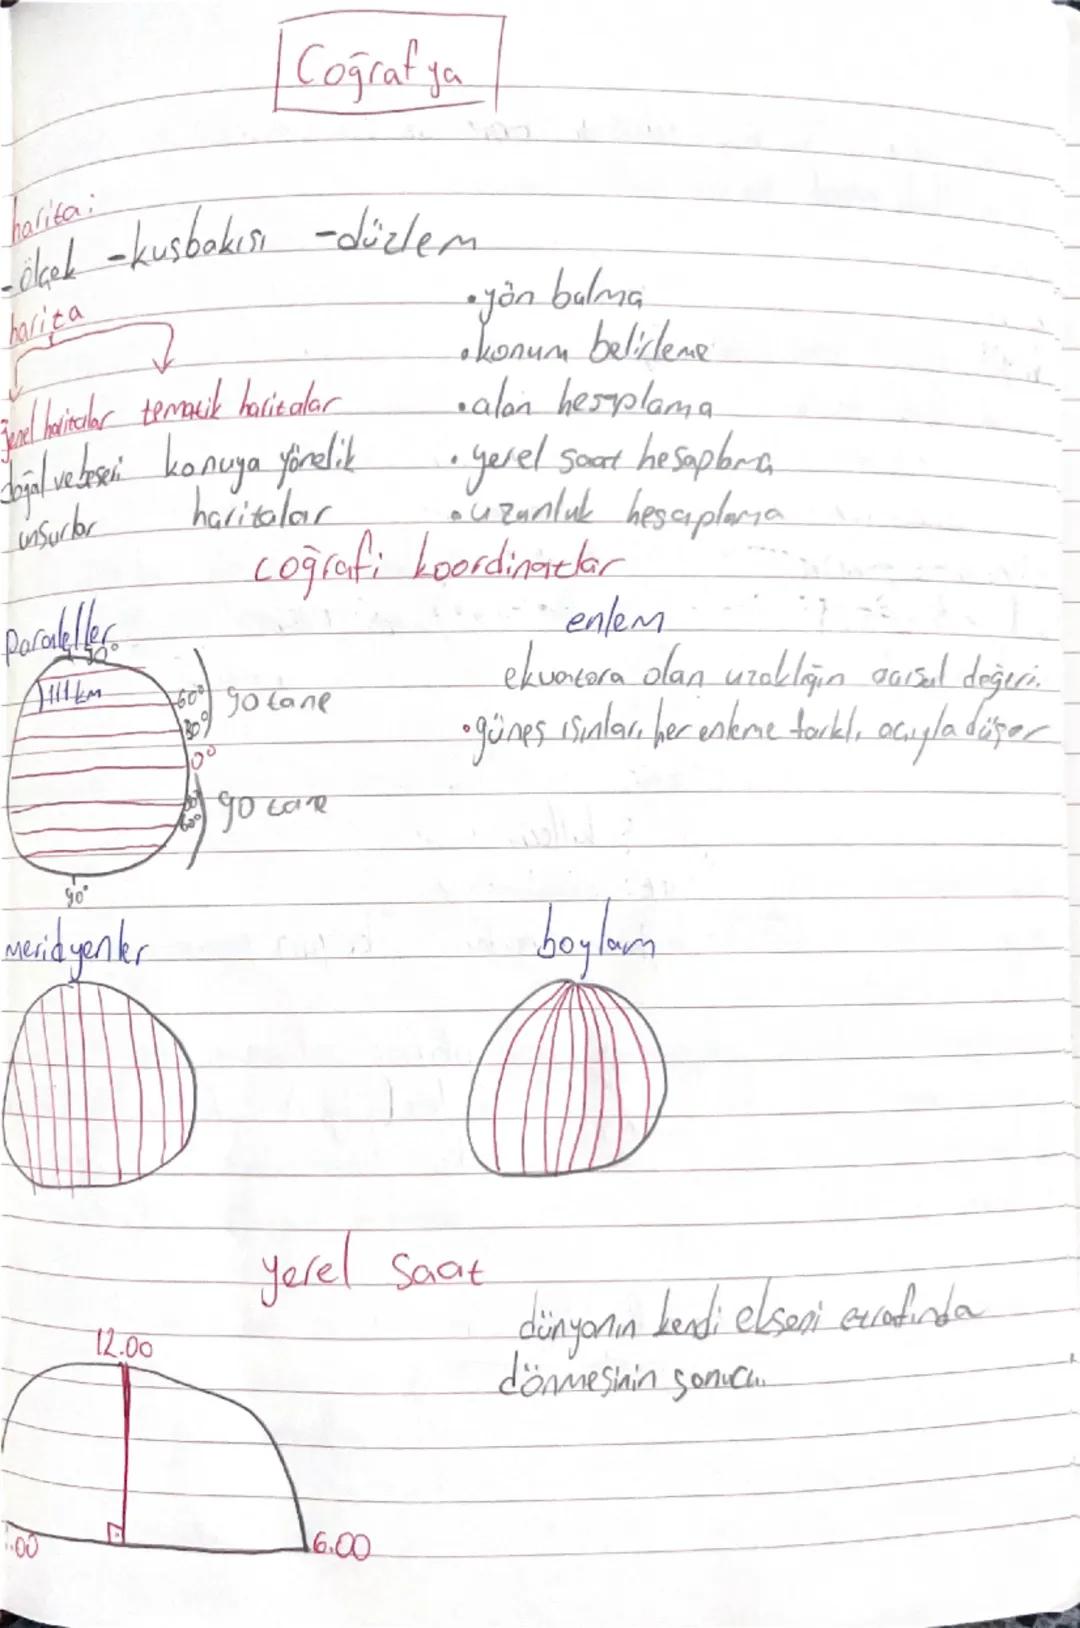 Coğrafya
harita:
-ölçek -kuşbakışı -düzlem
harita
genel haritalar tematik haritalar
doğal ve beşeri konuya yönelik
unsurlar haritalar
•yön bulma
•konum belirleme
•alan hesaplama
•yerel saat hesaplama
•uzunluk hesaplama
coğrafi koordinatlar
Paraleller
90°
111 km
60°
30°
0°
30°
60°
90 tane
90 tane
90°
enlem
ekvatora olan uzaklığın açısal değeri.
•güneş ışınları her enleme farklı açıyla düşer
meridyenler
boylam
yerel saat
12.00
dünyanın kendi ekseni etrafında
dönmesinin sonucu.
.00
6.00